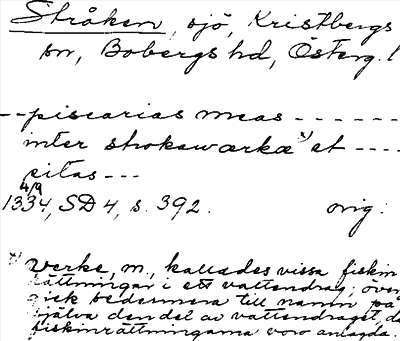 Stråken, sjö, Kristbergs
sn, Bobergs hd, Österg. l
-- piscarias meas ------
inter strokawærkæ x) et ----
sitas ---
4/9
1334, SD 4, s. 392. orig.
x) Verke, m., kallades vissa fiskin
rättningar i ett vattendrag; över
gick bedömmera till namn på
själva den del av vattendraget, dä
fiskinrättningarna voro anlagda.